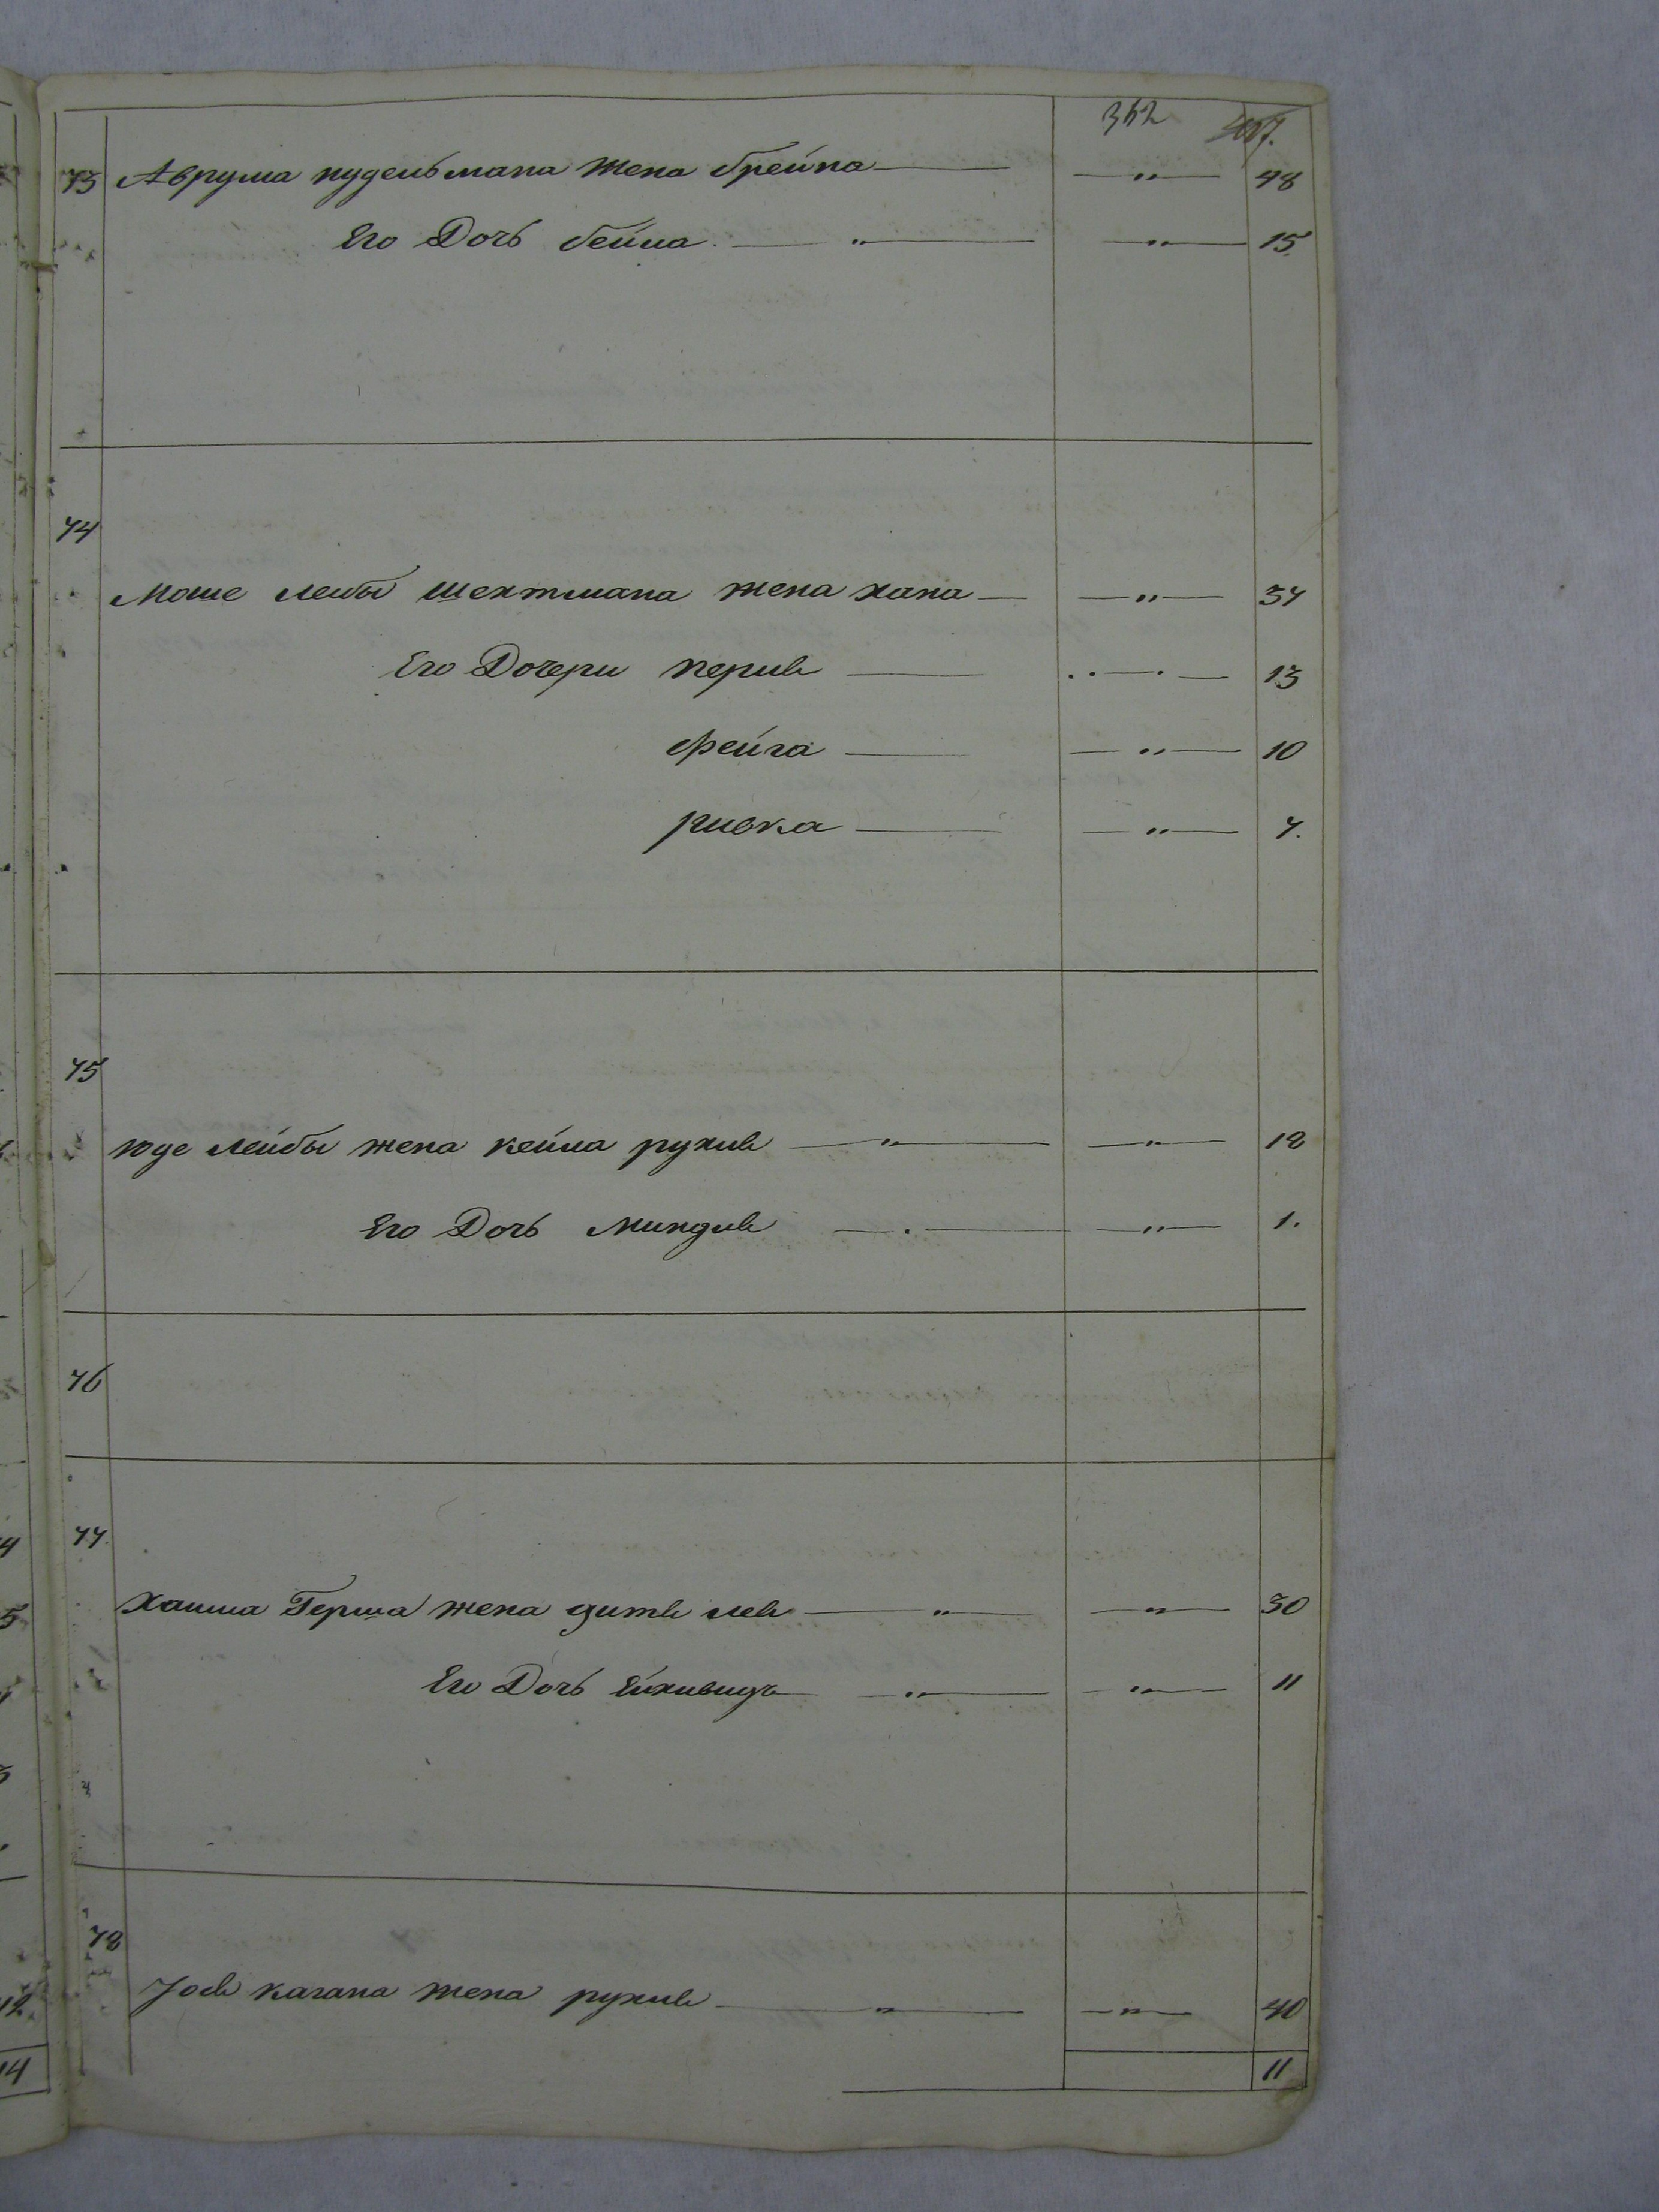 342 407.
73 Аврума нудельмана жена брейна — „ — 48
Его Дочь бейла — „ — „ — 15
74
Мошѣ лейбы шехтмана жена хана — „ — 37
Его Дочери перля — „ — 13
фейга — „ — 10
ривка — „ — 7.
75
Юде лейбы жена кейла рухля — „ — „ — 18
Его Дочь миндля — „ — 1.
76
77.
Хаима Герша жена дитля лея — „ — „ — 30
Его Дочь Ейхивидъ — „ — „ — 11
78
Іося кагана жена рухля — „ — „ — 40
11